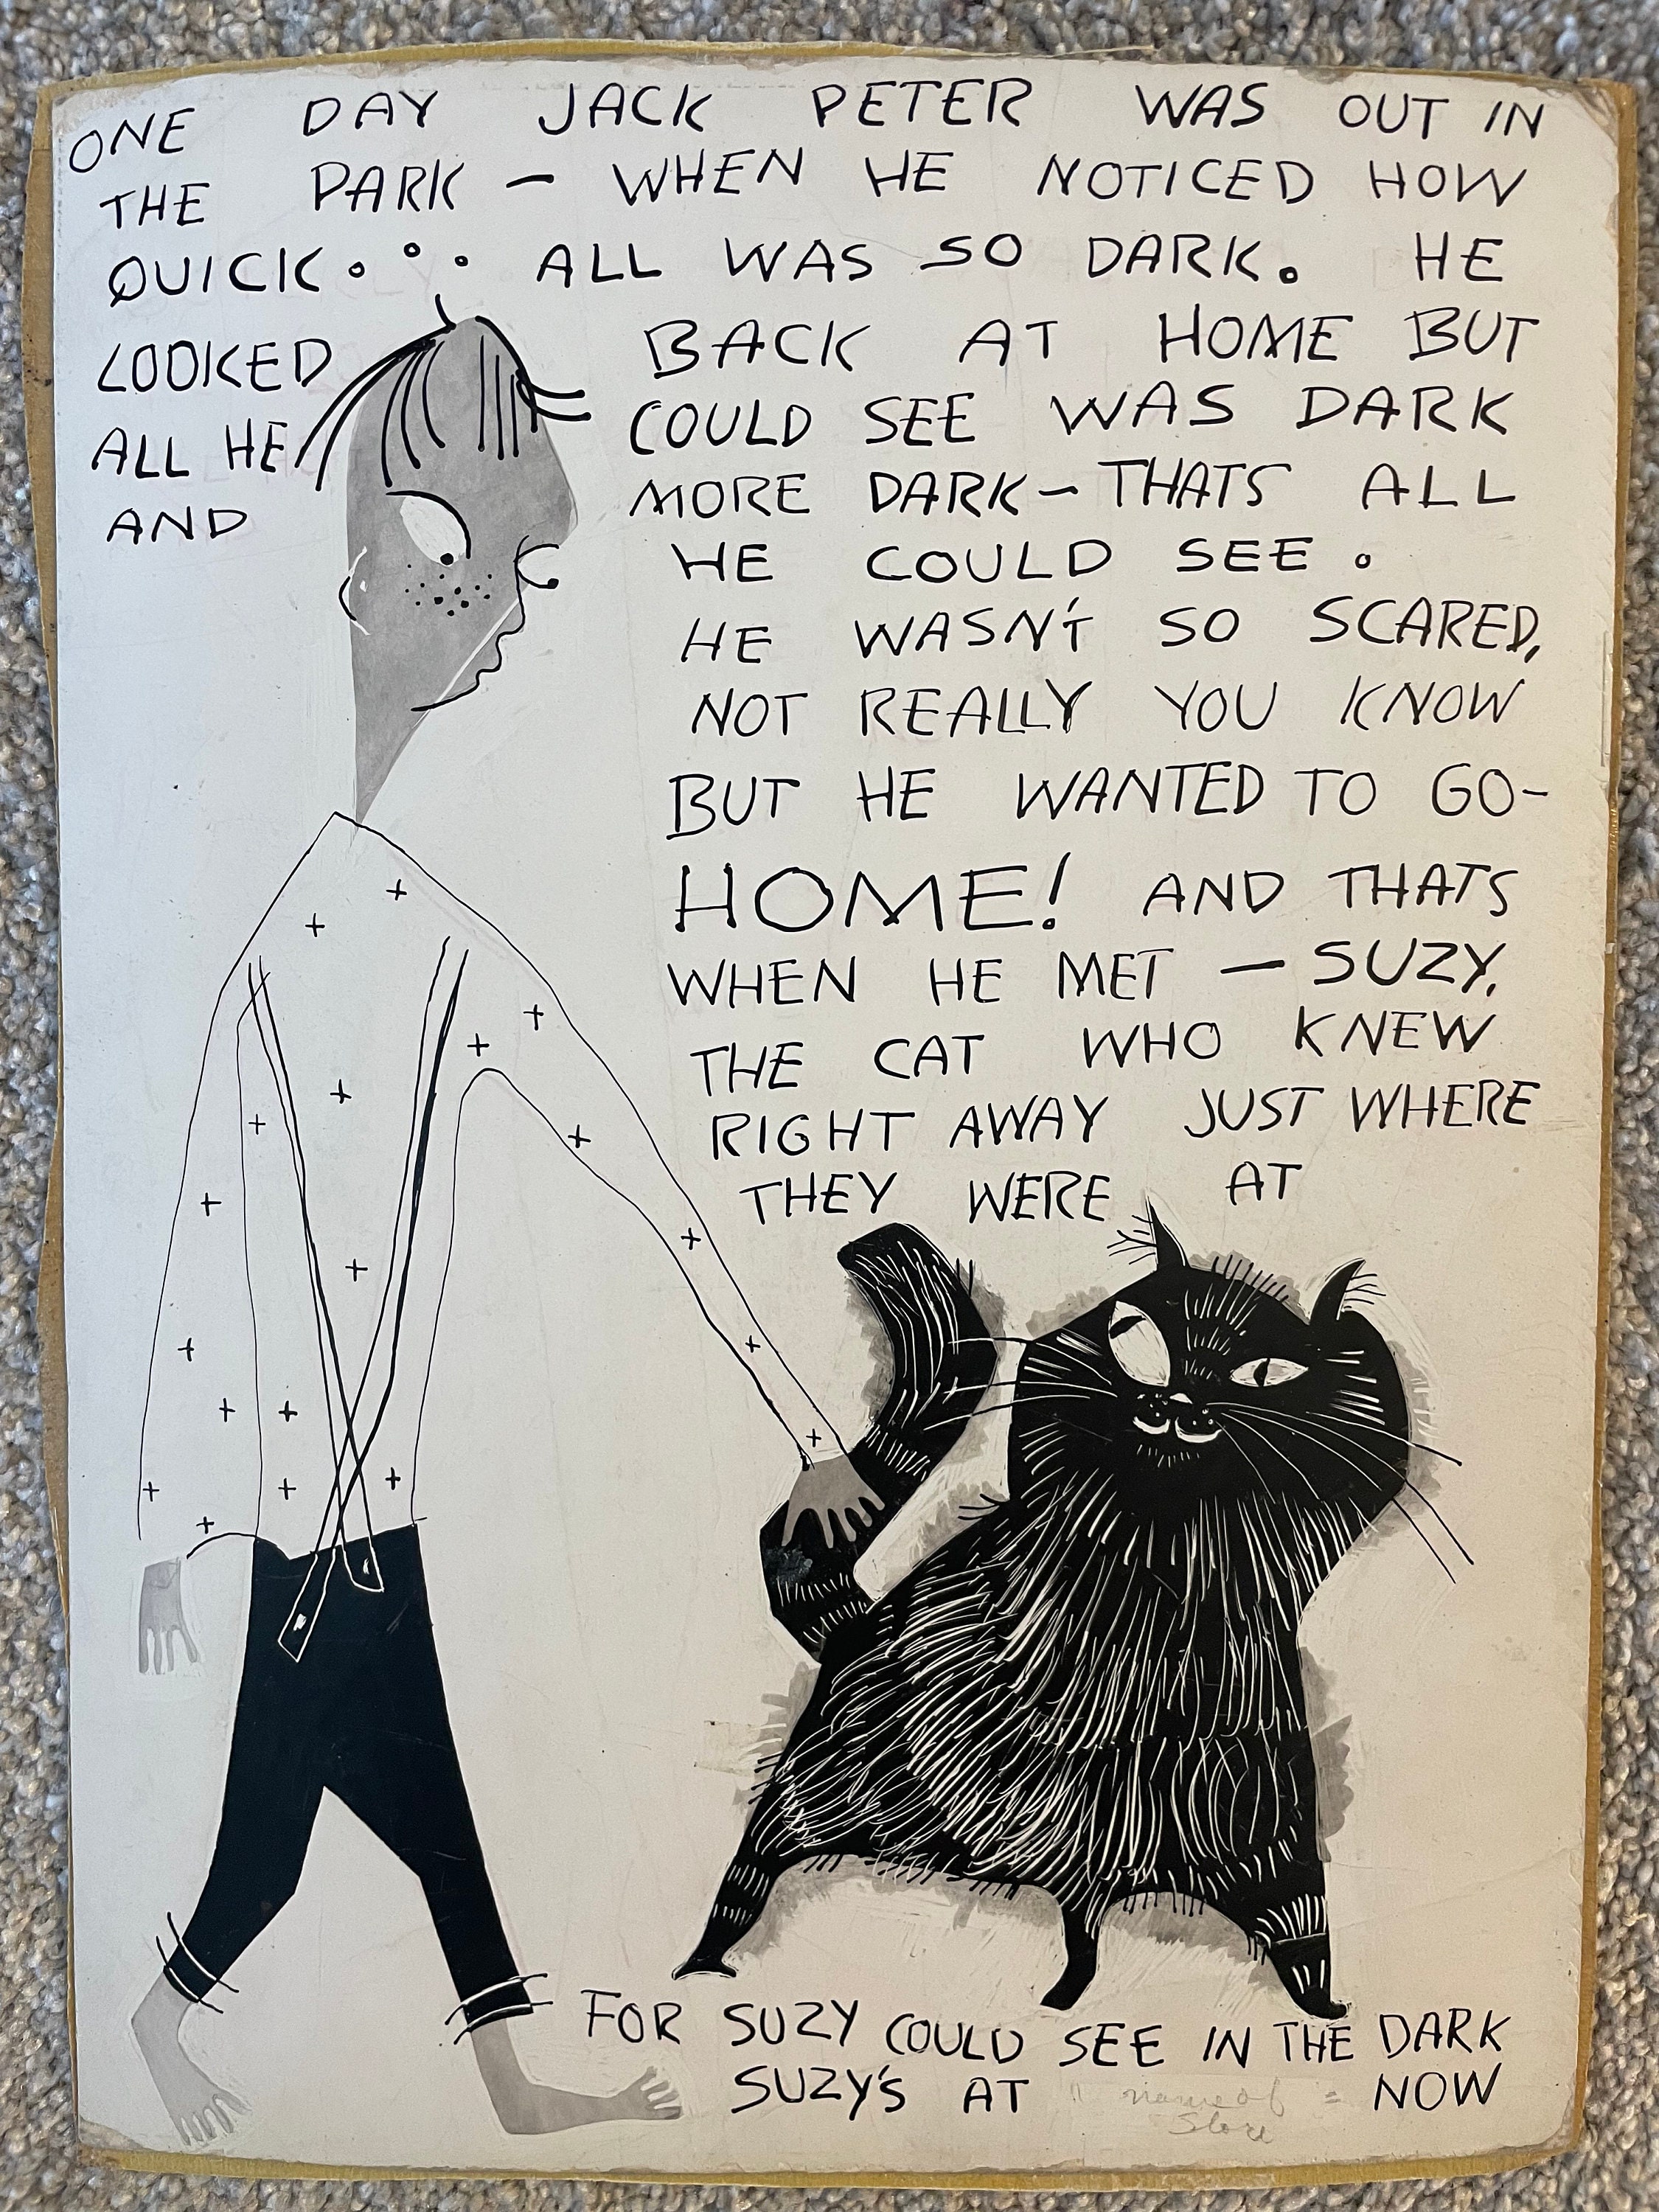 ONE DAY JACK PETER WAS OUT IN
THE PARK — WHEN HE NOTICED HOW
QUICK... ALL WAS SO DARK. HE
LOOKED BACK AT HOME BUT
ALL HE COULD SEE WAS DARK
AND MORE DARK — THATS ALL
HE COULD SEE.
HE WASN'T SO SCARED,
NOT REALLY YOU KNOW
BUT HE WANTED TO GO-
HOME! AND THATS
WHEN HE MET — SUZY,
THE CAT WHO KNEW
RIGHT AWAY JUST WHERE
THEY WERE AT
FOR SUZY COULD SEE IN THE DARK
SUZY'S AT " name of Store " NOW